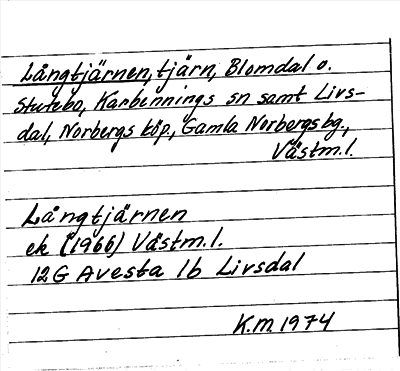 Långtjärnen, tjärn, Blomdal o.
Stutebo, Karbennings sn samt Livs-
dal, Norbergs köp, Gamla Norbergs bg.,
Västm.l.
Långtjärnen
ek (1966) Västm.l.
12G Avesta 1b Livsdal
K.M. 1974